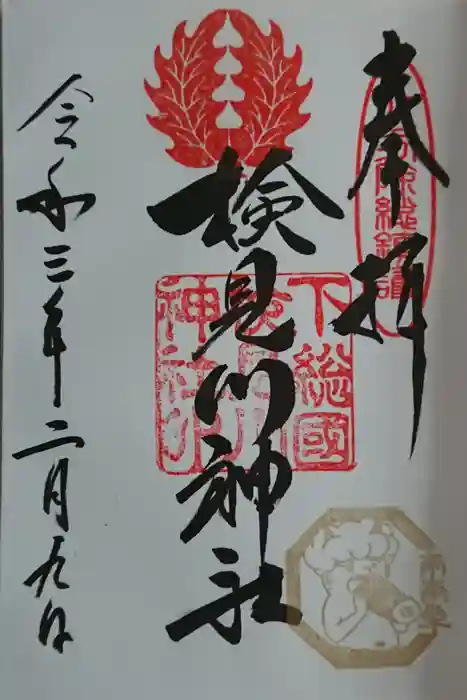 奉拝
下総國
検見川
神社印
検見川神社
令和三年二月九日